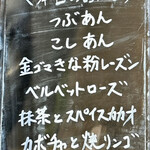 つぶあん
こしあん
金ゴマきな粉レーズン
ベルベットローズ
抹茶とスパイスカカオ
カボチャと焼リンゴ